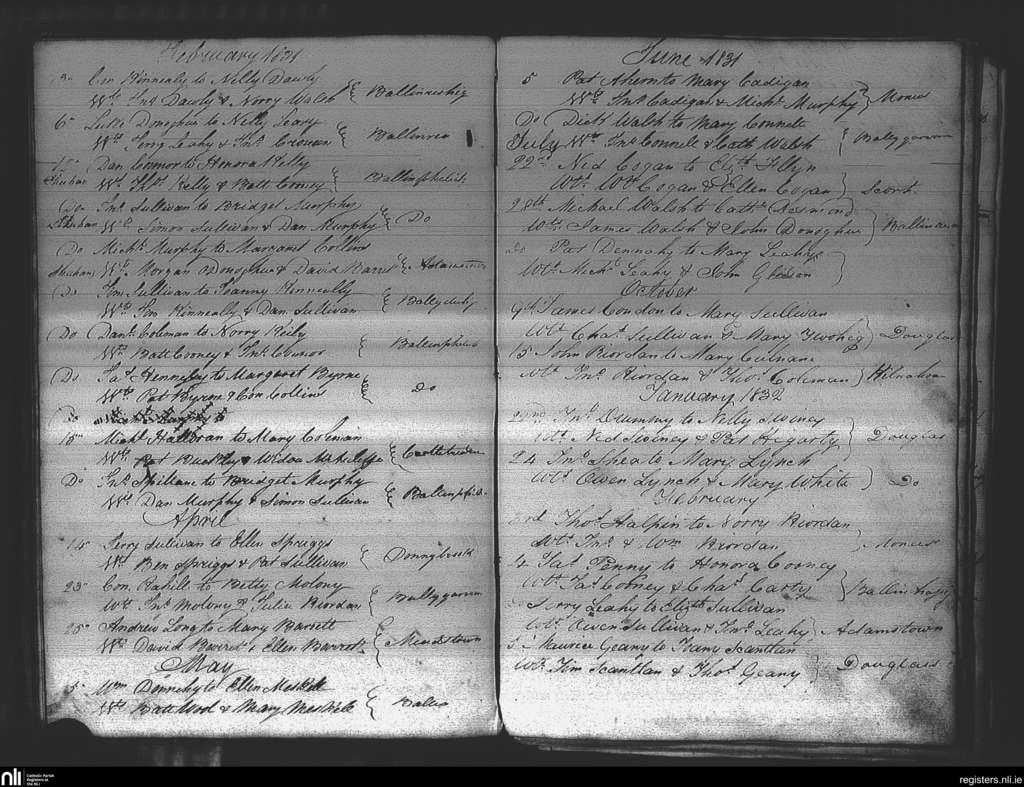 February 1831
Con Kinnealy to Nelly Dawly
Wts Dawly & Norry Walsh Ballinreshig
6 Luke Donoghue to Nelly Leary
Wts Terry Leahy & Jno. Cronan Ballinrea
15 Dan Connor to Honora Kelly
Wts Thos. Kelly & Batt Cooney Ballinphelick
Do Jno. Sullivan to Bridget Murphy
Shehan Wts Simon Sullivan & Dan Murphy Do
Do Michl. Murphy to Margaret Collins
Shehan Wts Morgan Donoghue & David Barret
Do Tim Sullivan to Joanny Kenneally
Wts Tim Kenneally & Dan Sullivan
Do Danl. Coleman to Norry Reily
Wts Batt Cooney & Jno. Connor Ballinphelick
Do Jas. Hennesey to Margaret Byrne
Wts Pat Byrne & Con Collins Do
Do
15 Michl. Halloran to Mary Coleman
Wts Pat Buckley & Widow
Do Jno. Spillane to Bridget Murphy
Wts Dan Murphy & Simon Sullivan Ballinphelick
April
Perry Sullivan to Ellen Spriggs
Wts Ben Spriggs & Pat Sullivan Donnybrook
23 Con. Cahill to Betty Molony
Wts Jno. Molony & Julia Riordan Ballygarvan
25 Andrew Long to Mary Barrett
Wts David Barrett & Ellen Barrett Meadstown
May
5 Wm Dennehy to Ellen Meskill
Wts Batt Wod & Mary Meskele Ballea
June 1831
5 Pat Ahern to Mary Cadigan
Wts Jno. Cadigan & Michl. Murphy Monees
Do Dick Walsh to Mary Connell
July Wts Jno. Connell & Cath Walsh Ballygarvan
22nd Ned Cogan to Elizth Flyn
Wts Wm Cogan & Ellen Cogan Scort
28th Michael Walsh to Cathe. Desmond
Wts James Walsh & John Donoghue
do Pat Dennehy to Mary Leahy
Wts Michl. Leahy & John Gleeson
October
9th James Condon to Mary Sullivan
Wts Chas. Sullivan & Mary Douglas
15 John Riordan to Mary Culnane
Wts Jno. Riordan & Thos. Coleman
January 1832
22nd Jno. Drummy to Nelly Swiney
Wts Ned Swiney & Pat Hegarty Douglas
24 Jno. Shea to Mary Lynch
Wts Owen Lynch & Mary White Do
February
3rd Thos. Halpin to Norry Riordan
Wts Jno. & Wm Riordan Monees
4 Jas. Penny to Honora Cooney
Wts Jas. Cooney & Chas. Carty
Terry Leahy to Elizth Sullivan
Wts Owen Sullivan & Jno. Leahy Adamstown
5 Maurice Geany to Joany Scanlan
Wts Tim Scanlan & Thos. Geany Douglass
nli
Catholic Parish
Registers at
the NLI
registers.nli.ie